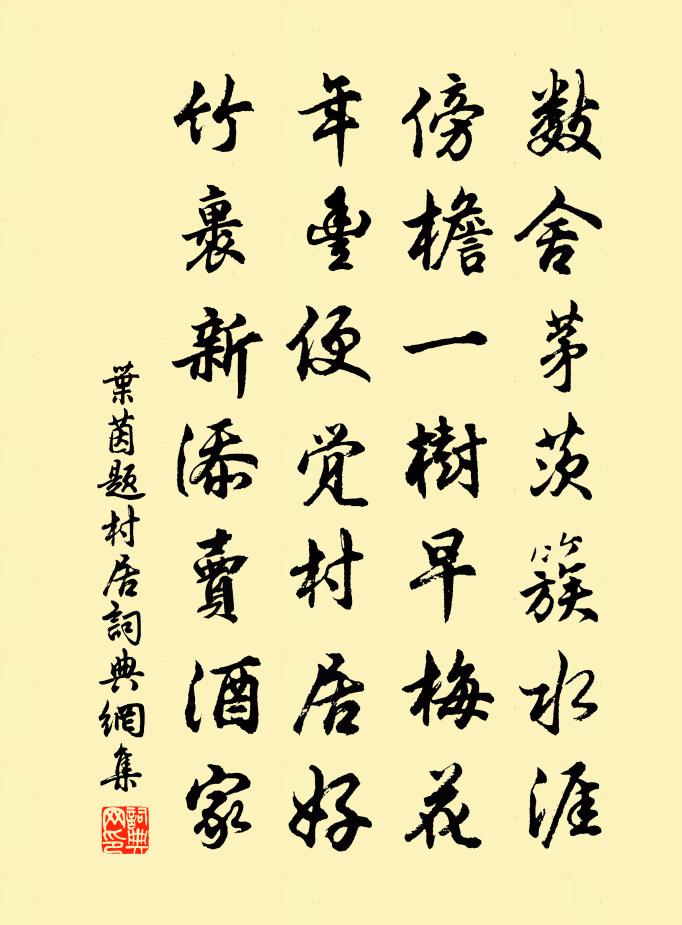 數舍茅茨簇水涯
傍檐一樹早梅花
年豐便覺村居好
竹裏新添賣酒家
葉茵題村居詞典網集
詞典網印